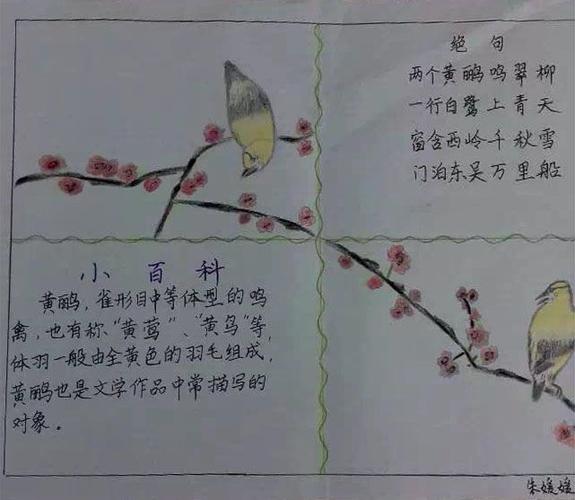 绝句
两个黄鹂鸣翠柳
一行白鹭上青天
窗含西岭千秋雪
门泊东吴万里船
小百科
黄鹂，雀形目中等体型的鸣
禽，也有称、“黄莺”、“黄鸟”等，
体羽一般由全黄色的羽毛组成，
黄鹂也是文学作品中常描写的
对象。
朱媛媛